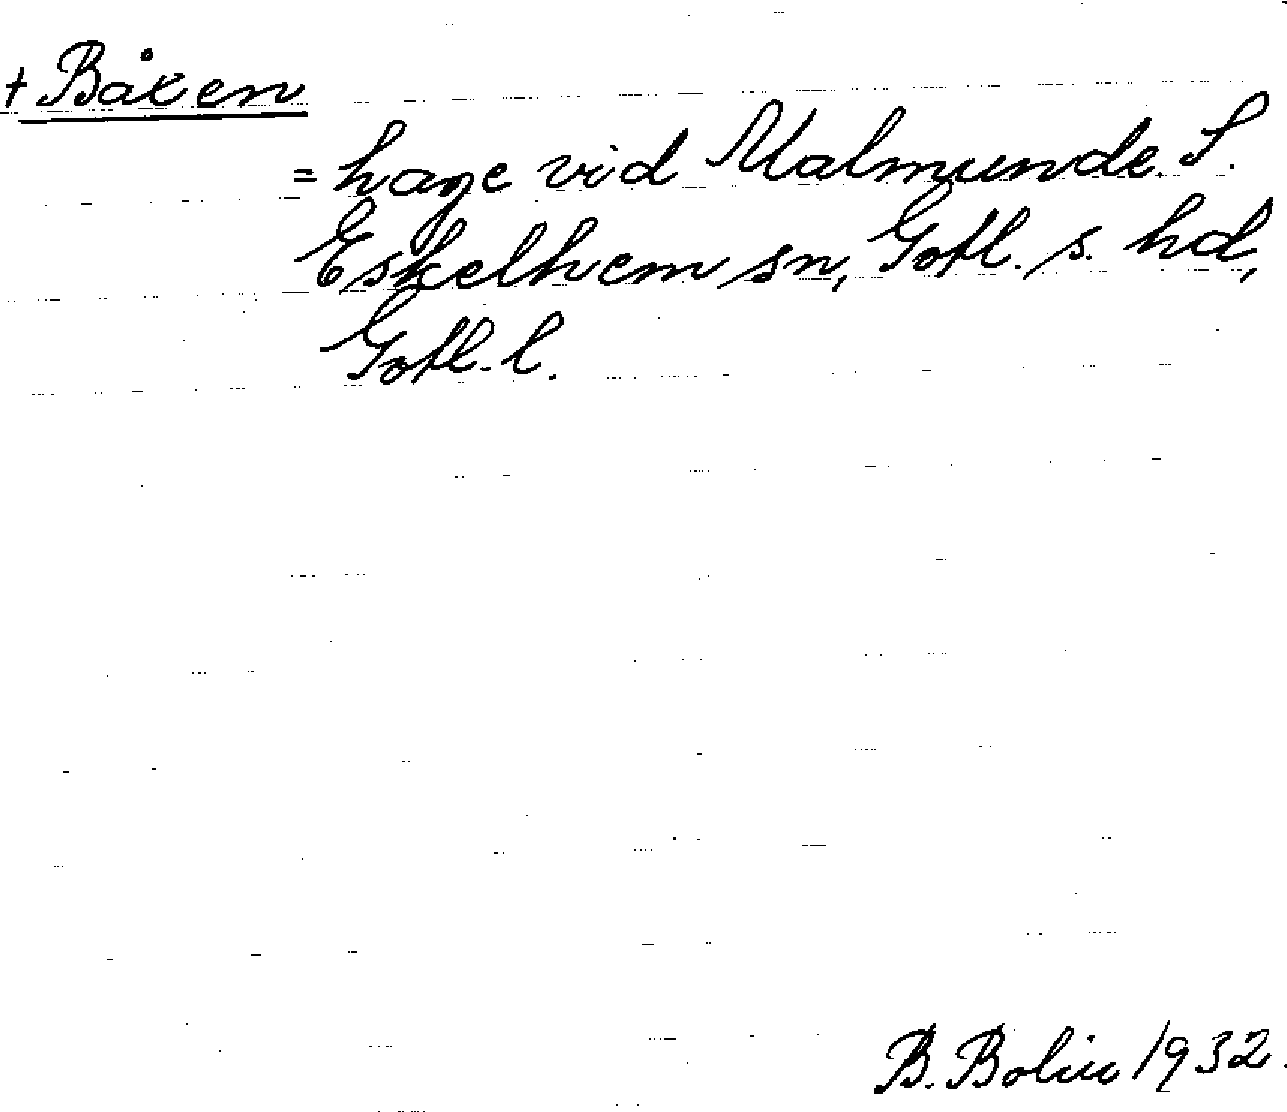 + Båken
= hage vid Malmunde. S.
Eskelhem sn, Gotl. s. hd,
Gotl. l.
B. Bolin 1932.